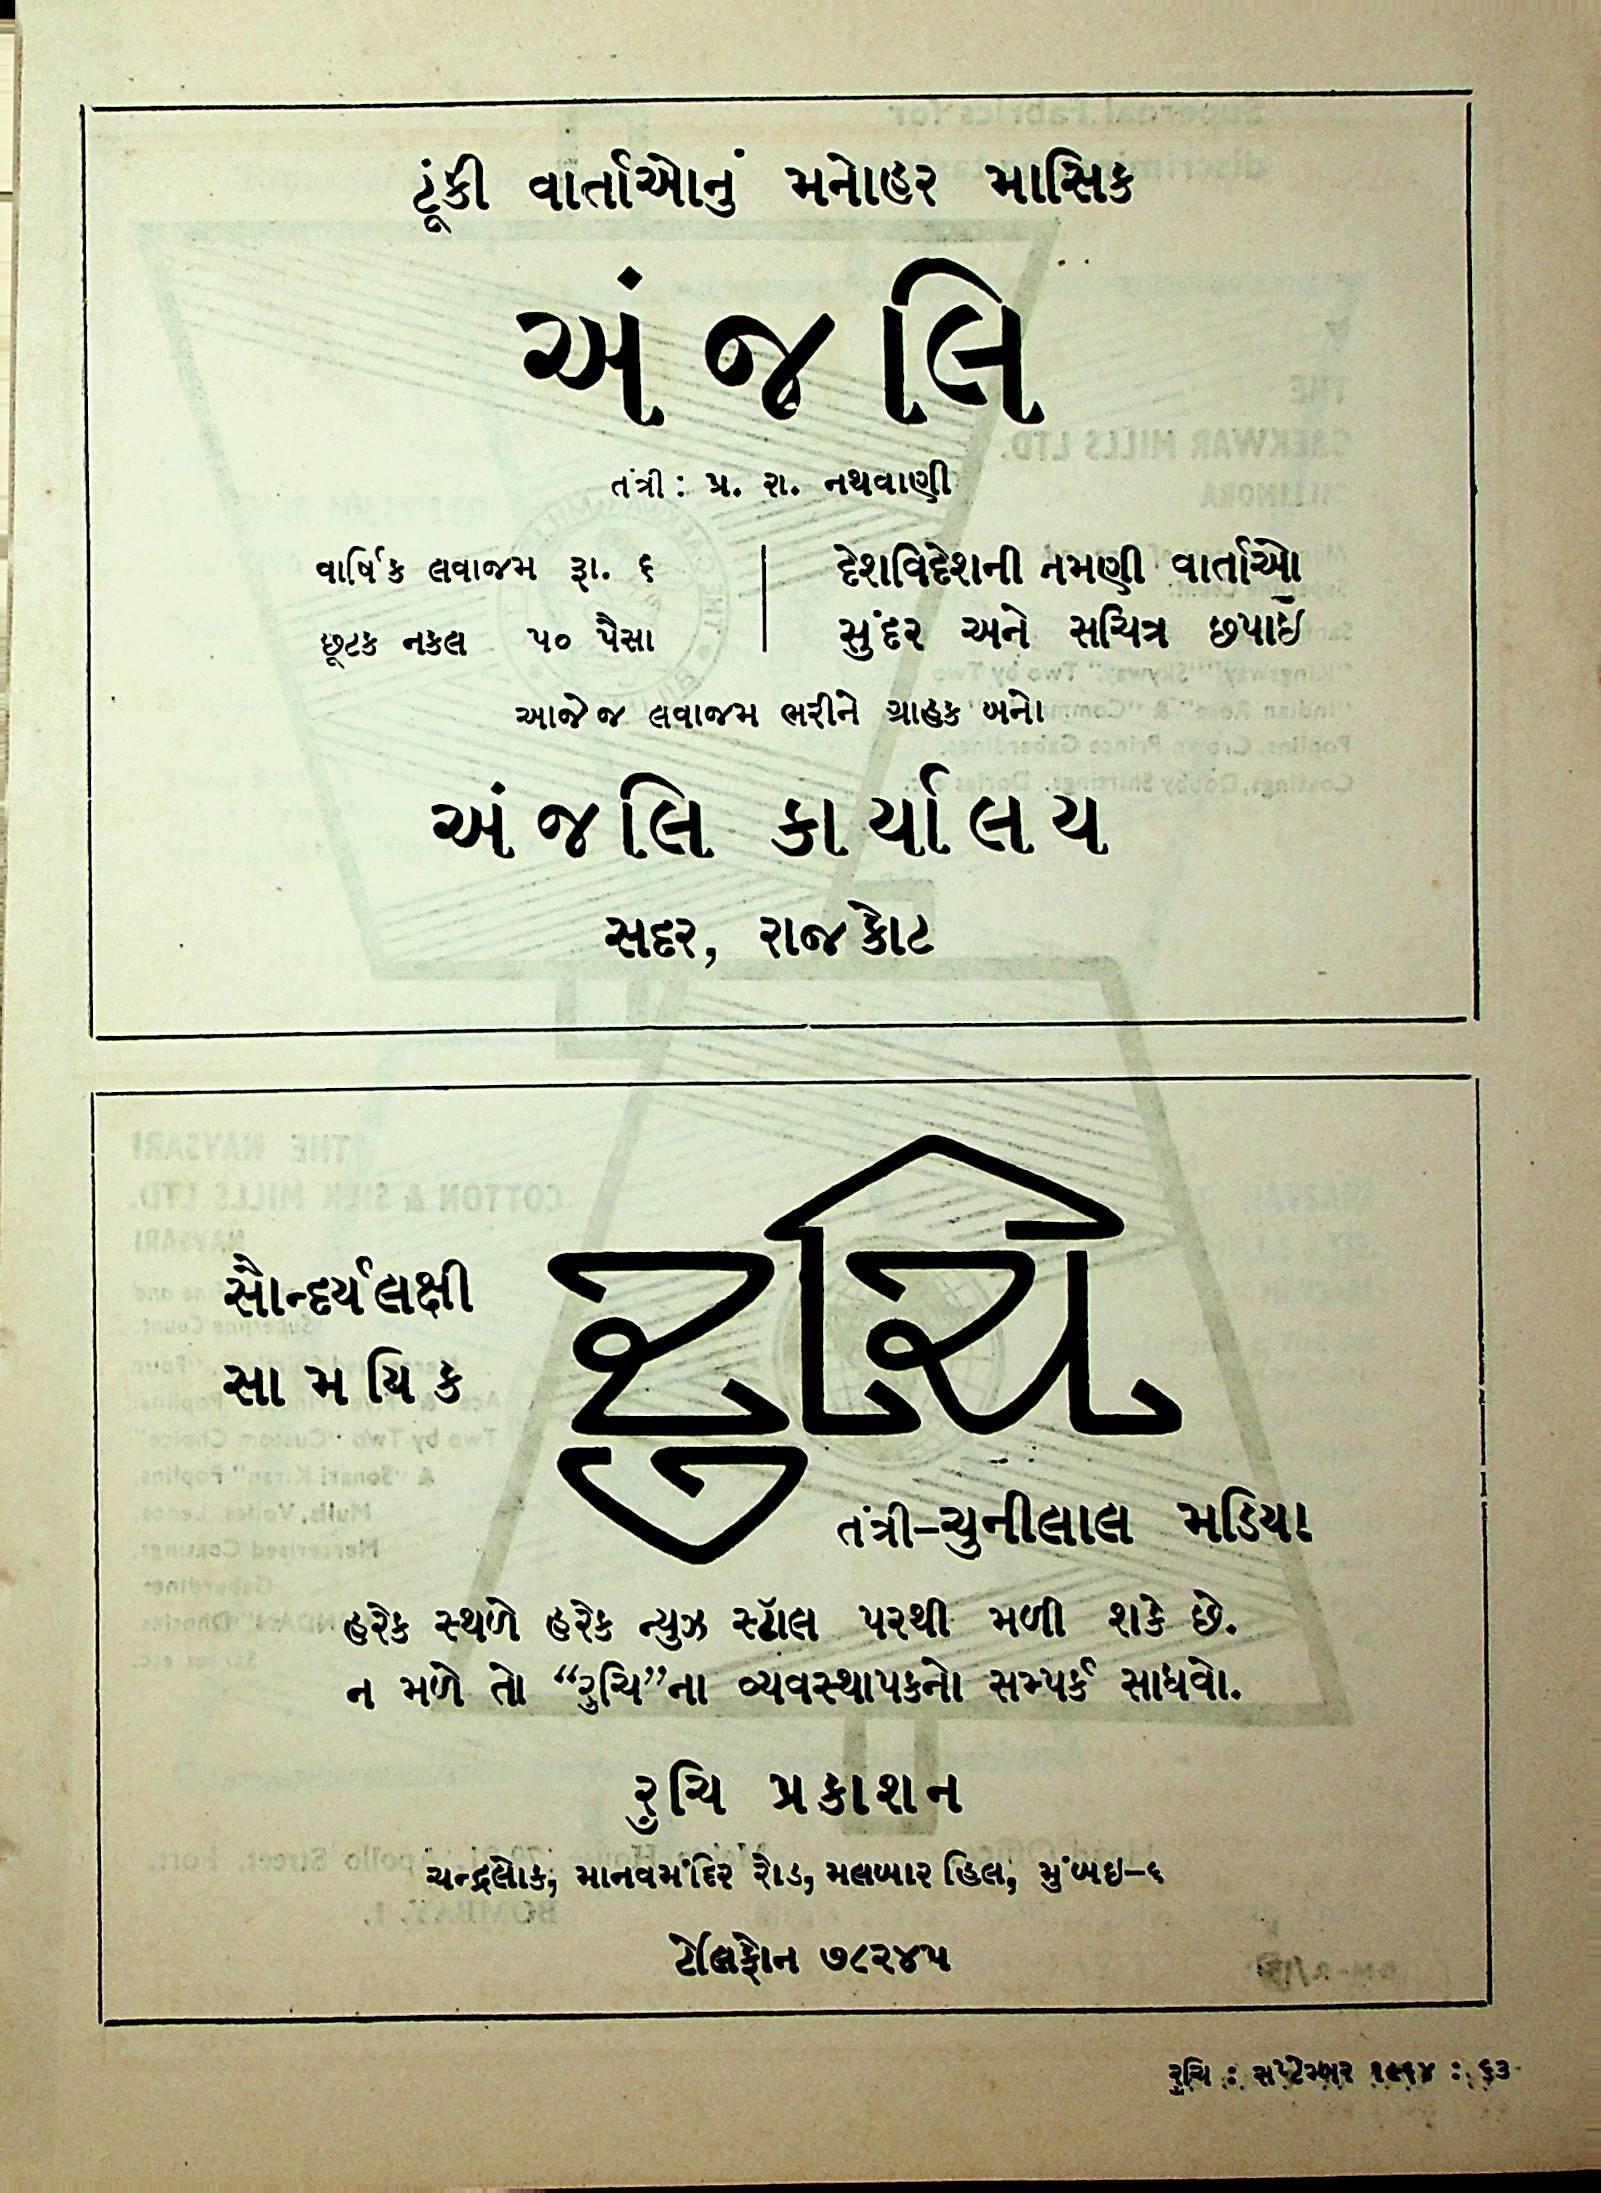 ટૂંકી વાર્તાઓનું મનોહર માસિક
અંજલિ
તંત્રી: પ્ર. રા. નથવાણી
વાર્ષિક લવાજમ રૂા. ૬
છૂટક નકલ ૫૦ પૈસા
દેશવિદેશની નમણી વાર્તાઓ
સુંદર અને સચિત્ર છપાઈ
આજે જ લવાજમ ભરીને ગ્રાહક બનો
અંજલિ કાર્યાલય
સદર, રાજકોટ
સૌન્દર્યલક્ષી
સામયિક
રુચિ
તંત્રી–ચુનીલાલ મડિયા
હરેક સ્થળે હરેક ન્યુઝ સ્ટૉલ પરથી મળી શકે છે.
ન મળે તો “રુચિ”ના વ્યવસ્થાપકનો સમ્પર્ક સાધવો.
રુચિ પ્રકાશન
ચન્દ્રલોક, માનવમંદિર રોડ, મલબાર હિલ, મુંબઇ–૬
ટેલિફોન ૭૮૨૪૫
રુચિ : સપ્ટેમ્બર ૧૯૬૪ : ૬૩